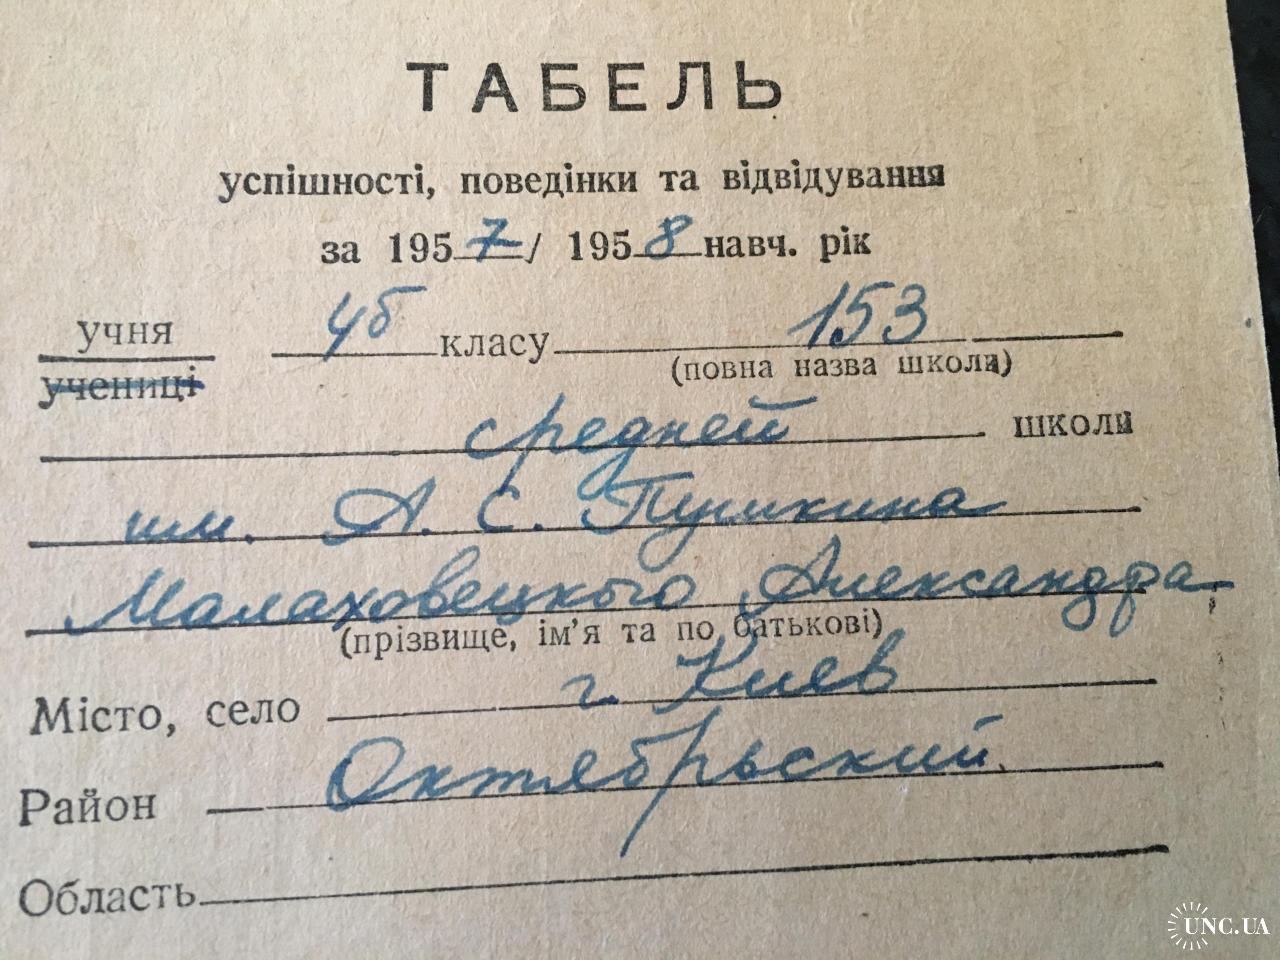 ТАБЕЛЬ
успішності, поведінки та відвідування
за 1957/ 1958 навч. рік
учня 4б класу 153
учениці (повна назва школи)
средней школи
им. А. С. Пушкина
Малаховецкого Александра
(прізвище, ім'я та по батькові)
Місто, село г. Киев
Район Октябрьский.
Область
UNC.UA